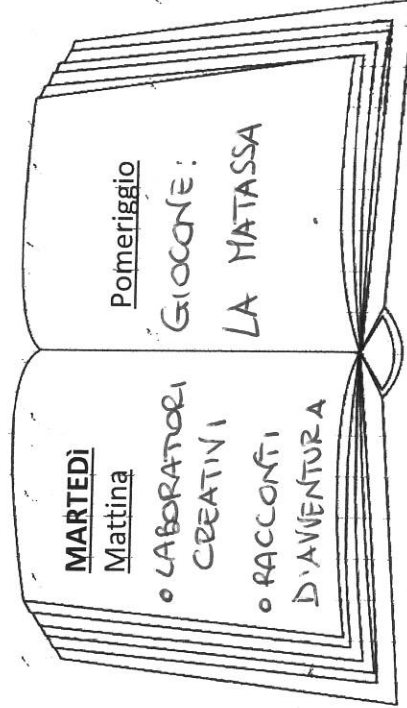 MARTEDÌ
Mattina
• LABORATORI
CREATIVI
• RACCONTI
D'AVVENTURA
Pomeriggio
GIOCONE:
LA MATASSA